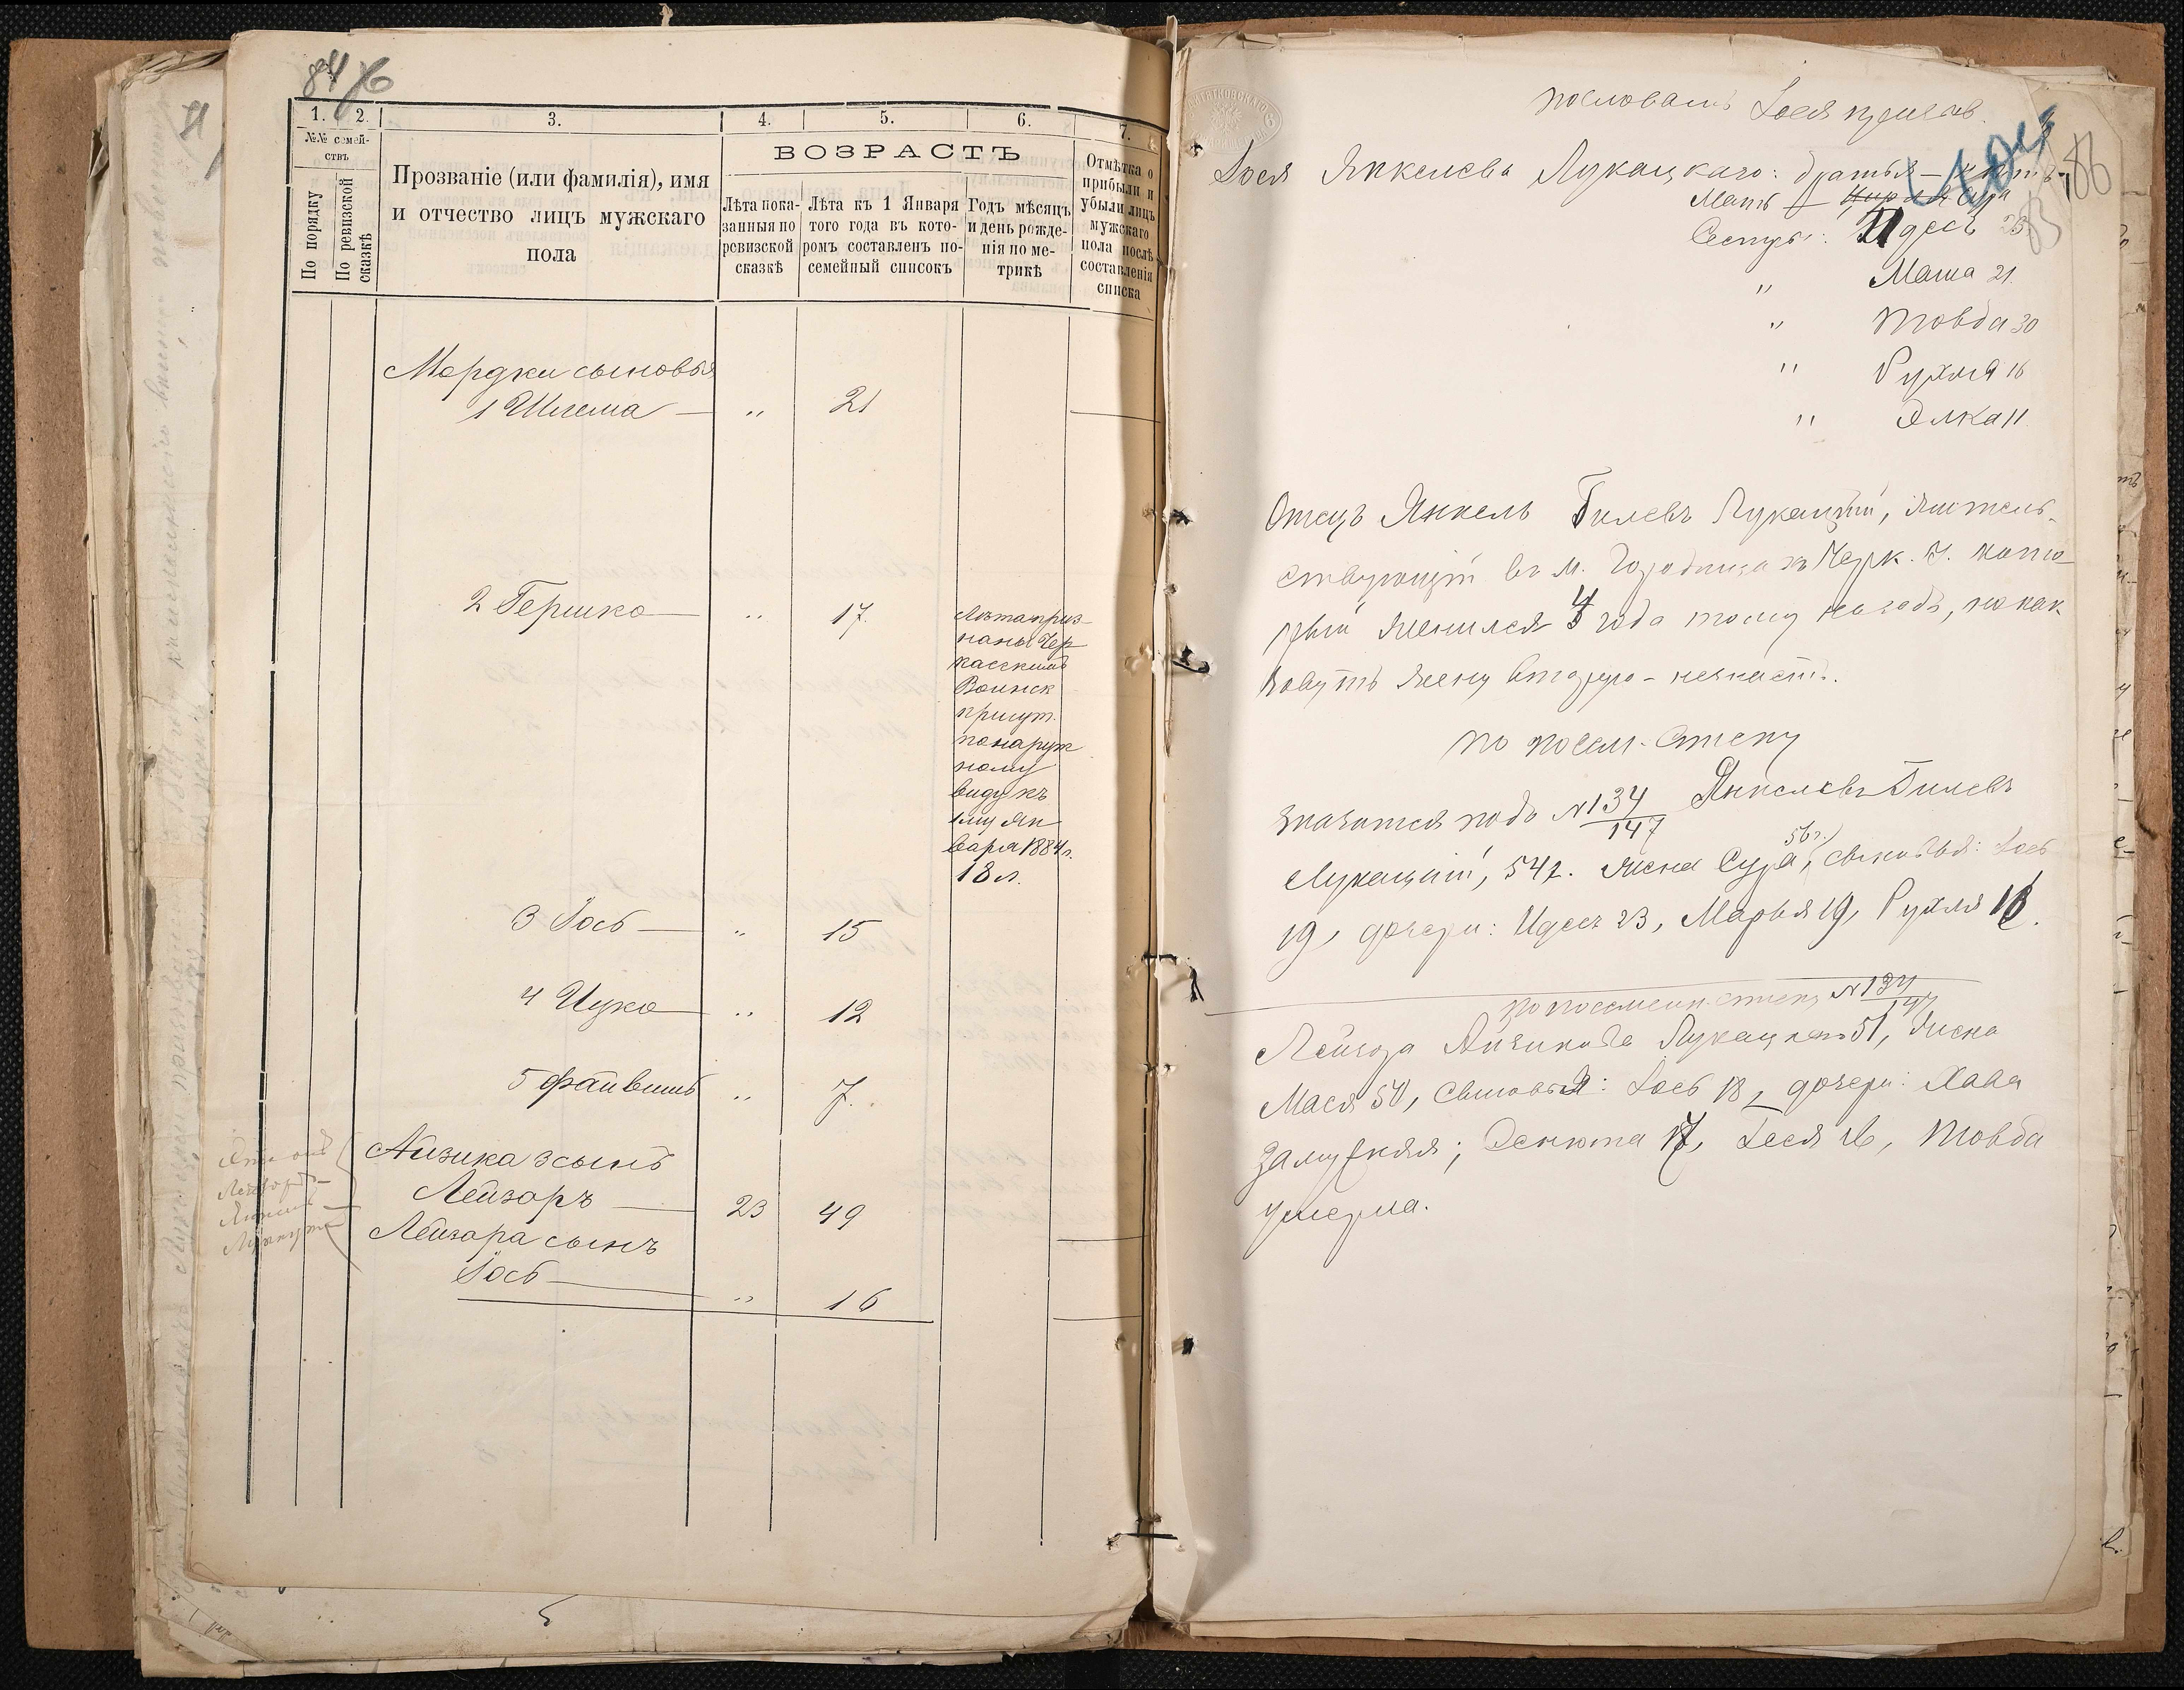 84
1. 2. 3. 4. 5. 6. 7.
№№ семей-
ствъ
По порядку
По ревизской
сказкѣ
Прозваніе (или фамилія), имя
и отчество лицъ мужскаго
пола
ВОЗРАСТЪ
Лѣта пока-
занныя по
ревизской
сказкѣ
Лѣта къ 1 Января
того года въ кото-
ромъ составленъ по-
семейный списокъ
Годъ мѣсяцъ
и день рожде-
нія по ме-
трикѣ
Отмѣтка о
прибыли и
убыли лицъ
мужскаго
пола послѣ
составленія
списка
Мордки сыновья
1 Шлема — „ 21
2 Гершко — „ 17.
Лѣта приз-
наны Чер
касскимъ
Воинск
присут.
понаруж
ному
виду къ
1му Ян
варя 1884 г.
18 л.
3 Іось — „ 15
4 Ицко — „ 12
5 Файвишъ „ 7.
Айзика 3 сынъ
Лейзоръ — 23 49
Лейзора сынъ
Іось — „ 16
по словамъ Іося
Іося Янкелева Лукацкаго: братья —
Мать — Сура
Сестры: Идесъ 23
„ Маша 21.
„ Товба 30
„ Рухля 16
„ Элка 11
86
Отецъ Янкель Гилевъ Лукацкій, жительствующій
въ м. Городища Черк. у. кото-
рый женился 4 года тому назадъ, но какъ
зовутъ жену вторую - неизвѣстн.
по посем. списку
значится подъ №134/147 Янкелевъ Гилевъ
Лукацкій, 54 г. жена Сура, 56 г.) сыновья: Іось
19, дочери: Идесъ 23, Марья 19, Рухля 16.
по посемейн. списку №134/147
Лейзора Айзикова Лукацкаго 51, жена
Мася 50, сыновья: Іось 18, дочери: Хава
замужняя; Эснюта 17, Товба
умерла.